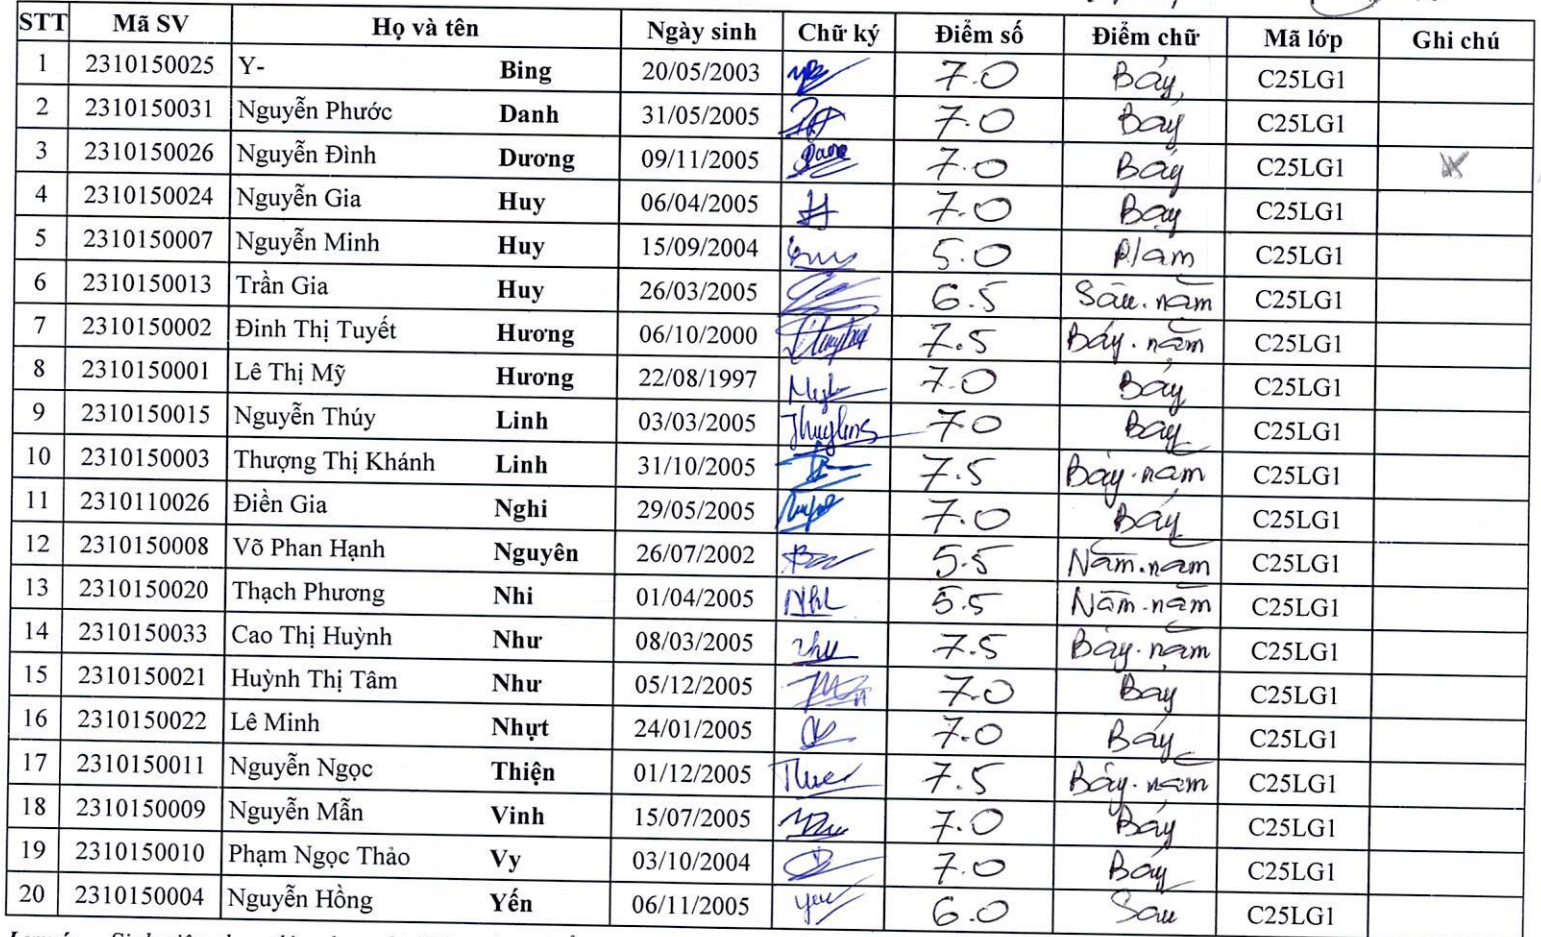 STT Mã SV Họ và tên Ngày sinh Chữ ký Điểm số Điểm chữ Mã lớp Ghi chú
1 2310150025 Y- Bing 20/05/2003 7.0 Bảy C25LG1
2 2310150031 Nguyễn Phước Danh 31/05/2005 7.0 Bảy C25LG1
3 2310150026 Nguyễn Đình Dương 09/11/2005 7.0 Bảy C25LG1
4 2310150024 Nguyễn Gia Huy 06/04/2005 7.0 Bảy C25LG1
5 2310150007 Nguyễn Minh Huy 15/09/2004 5.0 C25LG1
6 2310150013 Trần Gia Huy 26/03/2005 6.5 Sáu.năm C25LG1
7 2310150002 Đinh Thị Tuyết Hương 06/10/2000 7.5 Bảy.năm C25LG1
8 2310150001 Lê Thị Mỹ Hương 22/08/1997 7.0 Bảy C25LG1
9 2310150015 Nguyễn Thúy Linh 03/03/2005 Thuylinh 7.0 Bảy C25LG1
10 2310150003 Thượng Thị Khánh Linh 31/10/2005 7.5 Bảy.năm C25LG1
11 2310110026 Điền Gia Nghi 29/05/2005 7.0 Bảy C25LG1
12 2310150008 Võ Phan Hạnh Nguyên 26/07/2002 5.5 Năm.năm C25LG1
13 2310150020 Thạch Phương Nhi 01/04/2005 Nhi 5.5 Năm.năm C25LG1
14 2310150033 Cao Thị Huỳnh Như 08/03/2005 7.5 Bảy.năm C25LG1
15 2310150021 Huỳnh Thị Tâm Như 05/12/2005 7.0 Bảy C25LG1
16 2310150022 Lê Minh Nhựt 24/01/2005 7.0 Bảy C25LG1
17 2310150011 Nguyễn Ngọc Thiện 01/12/2005 7.5 Bảy.năm C25LG1
18 2310150009 Nguyễn Mẫn Vinh 15/07/2005 7.0 Bảy C25LG1
19 2310150010 Phạm Ngọc Thảo Vy 03/10/2004 7.0 Bảy C25LG1
20 2310150004 Nguyễn Hồng Yến 06/11/2005 6.0 Sáu C25LG1